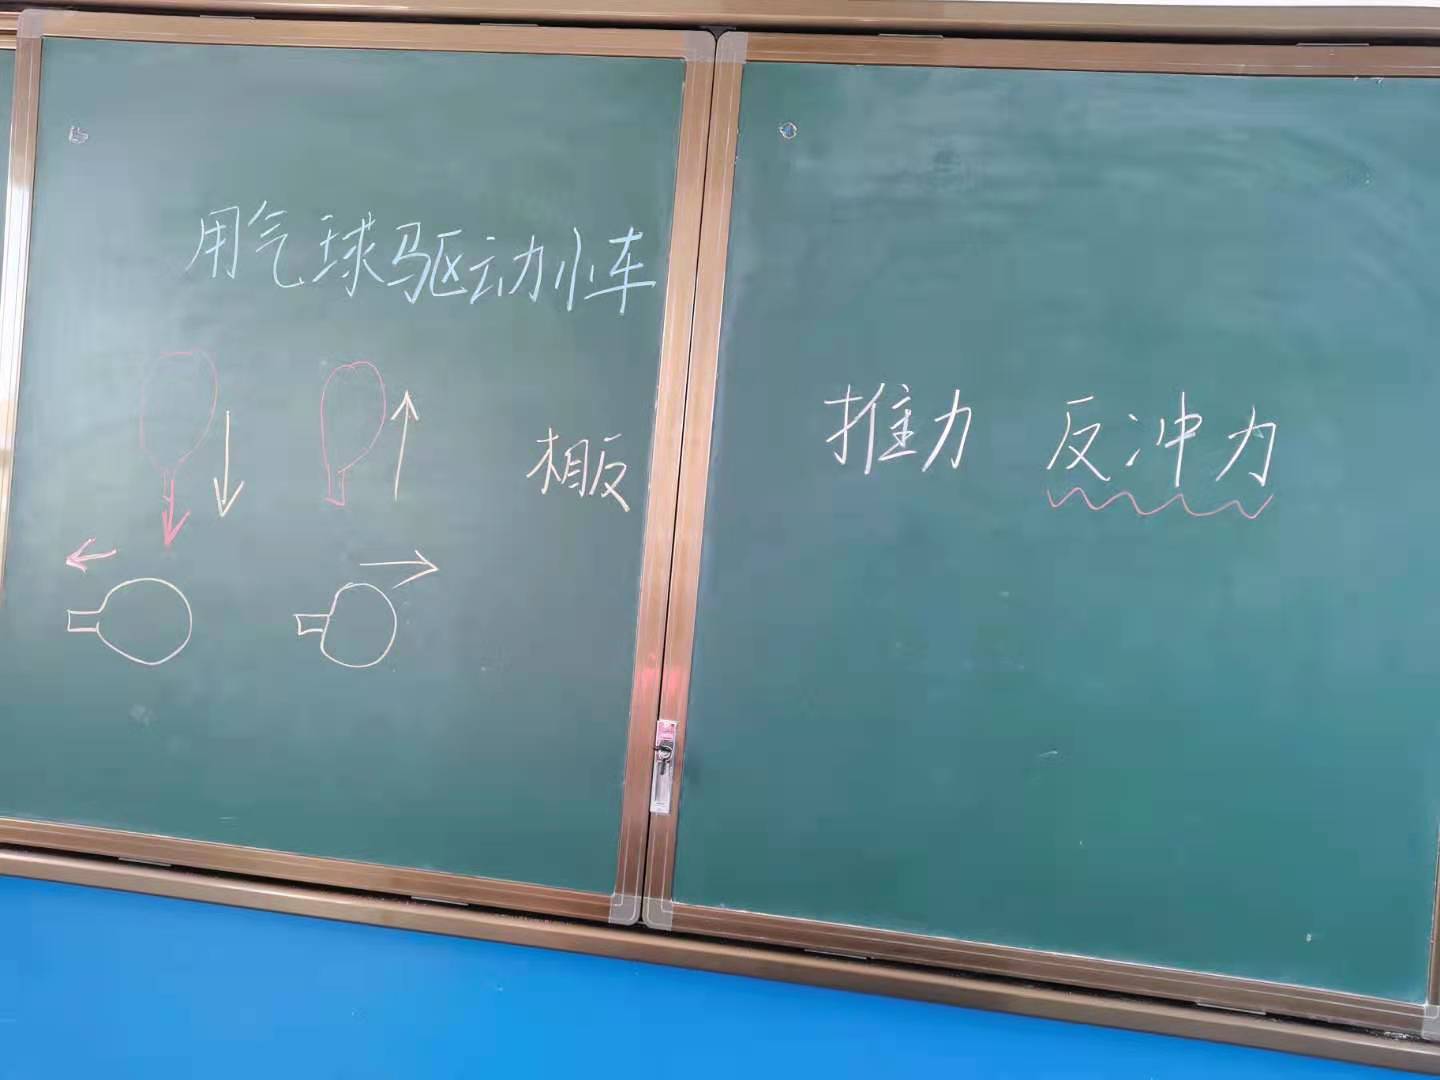 用气球驱动小车
相反
推力 反冲力